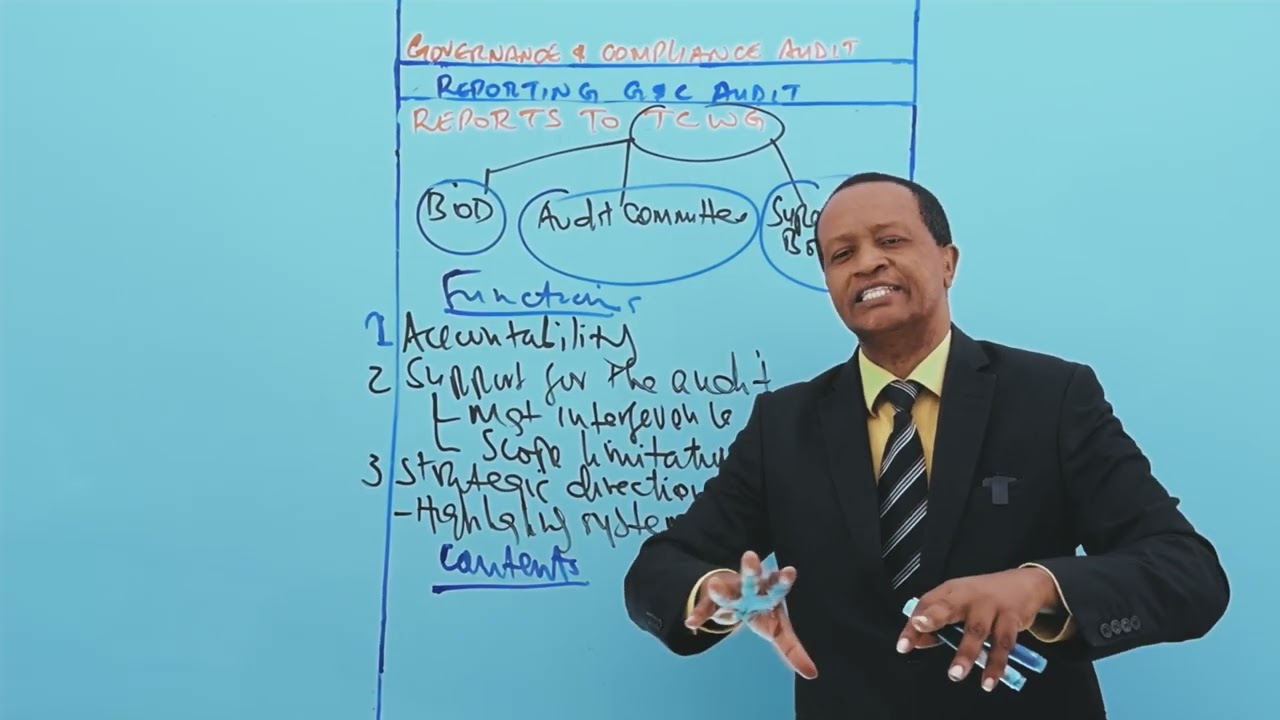 GOVERNANCE & COMPLIANCE AUDIT
REPORTING G&C AUDIT
REPORTS TO TCWG
BOD Audit Committee
Functions
1 Accountability
2 Support for the audit
Mgt
Scope
3 Strategic direction
- Highlighting
Contents